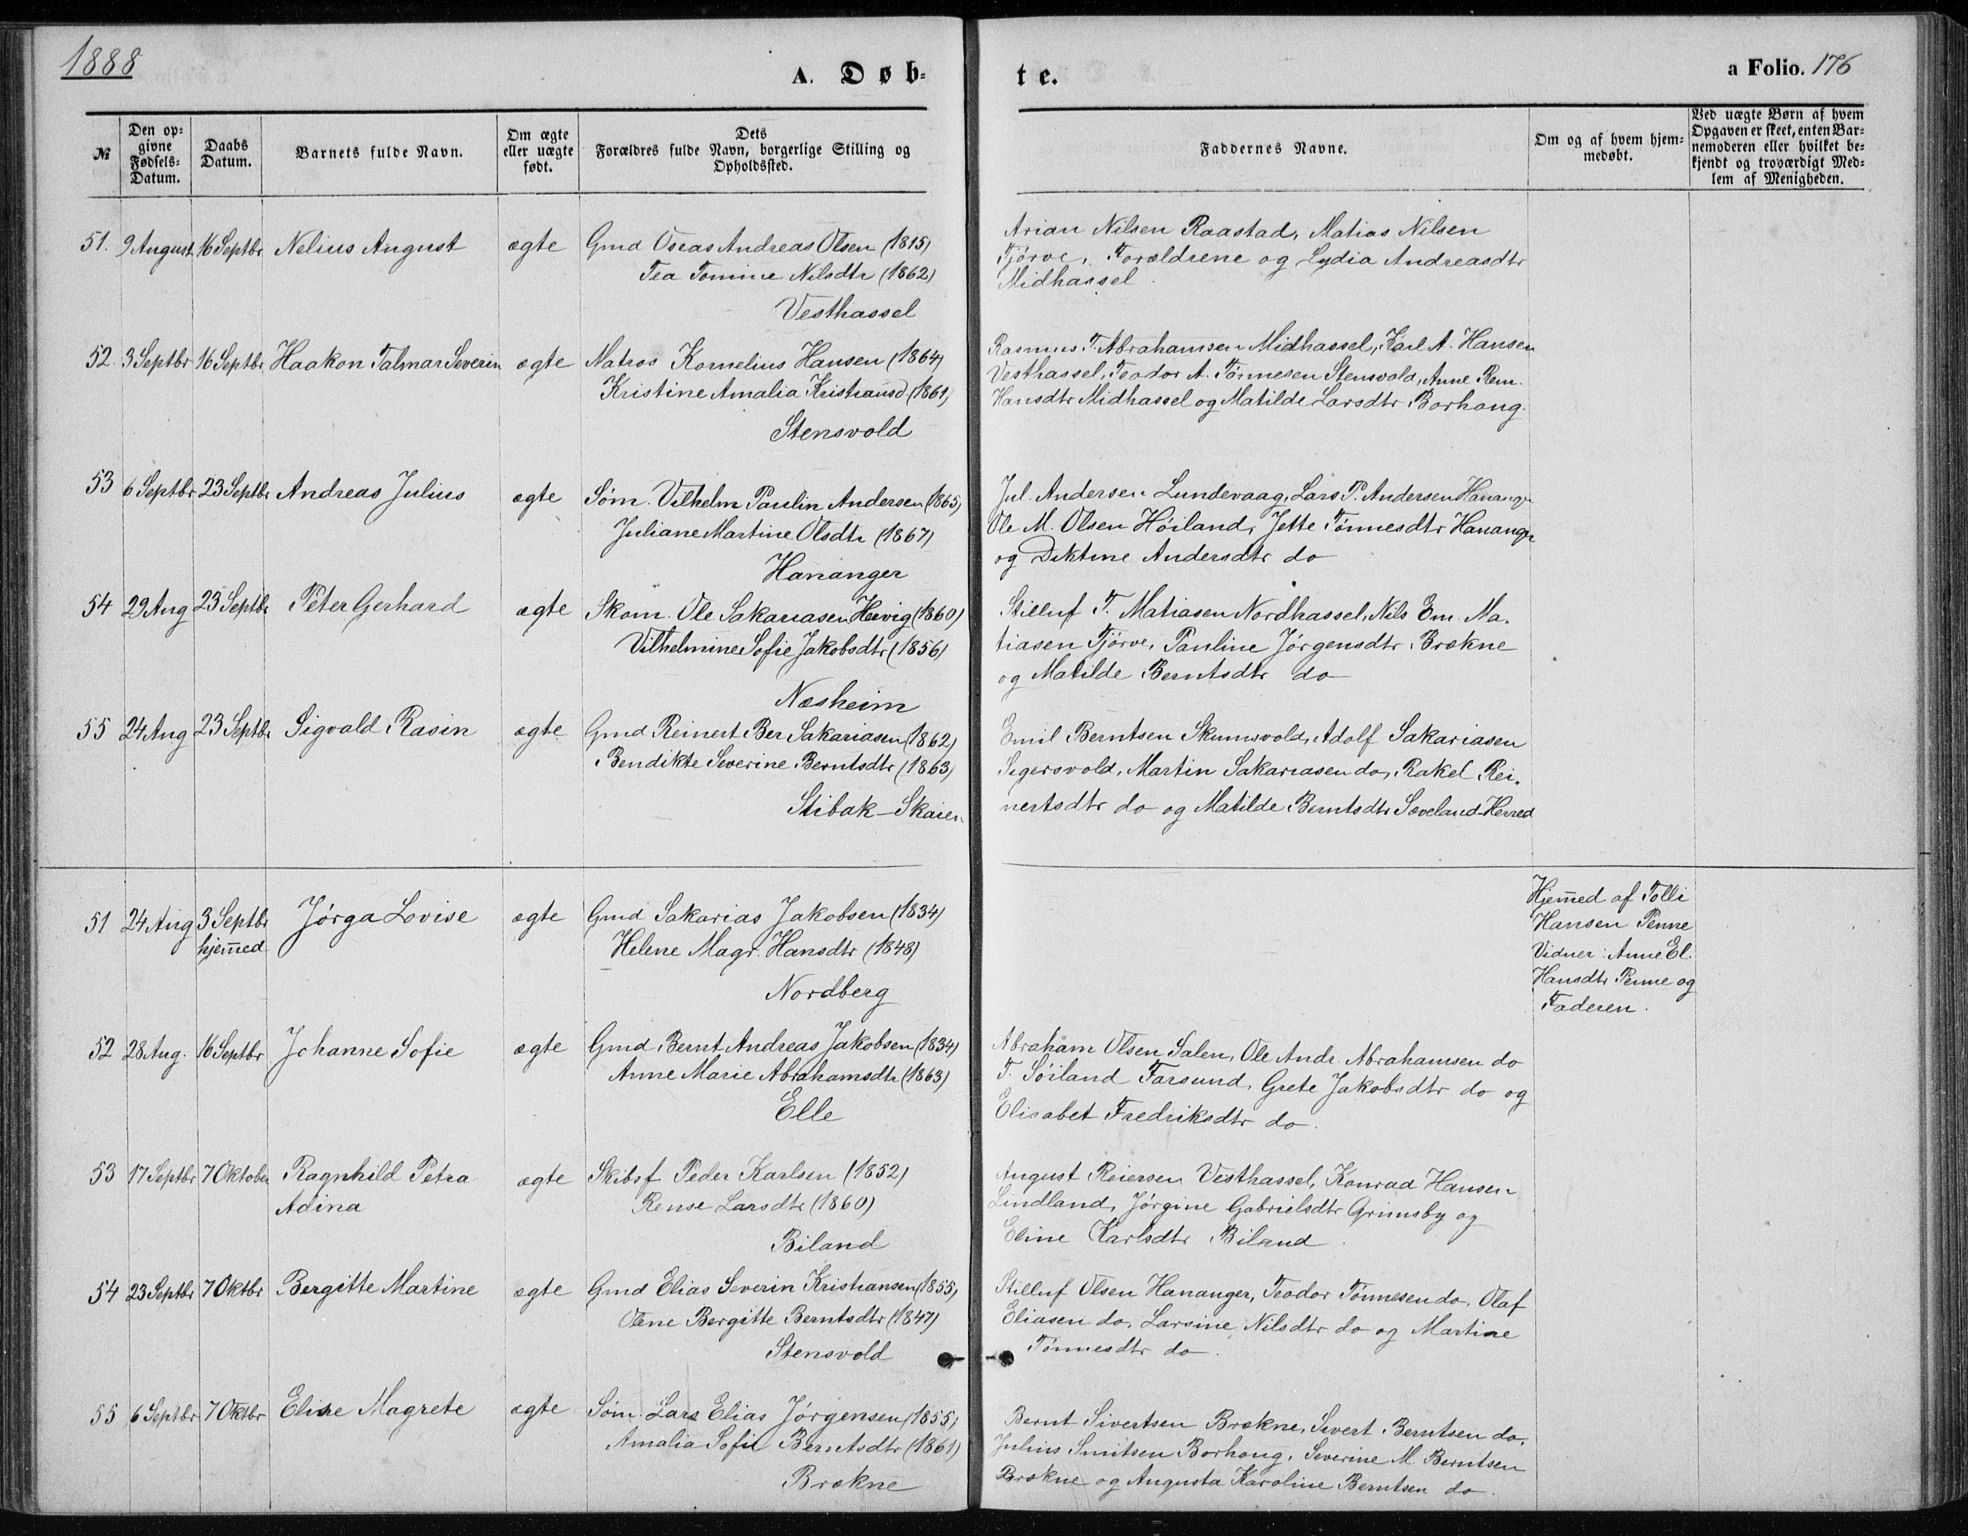 1888
A. Døb-
te.
a Folio. 176
№
Den op-
givne
Fødsels-
Datum.
Daabs
Datum.
Barnets fulde Navn.
Om ægte
eller uægte
født.
Dets
Forældres fulde Navn, borgerlige Stilling og
Opholdssted.
Faddernes Navne.
Om og af hvem hjem-
medøbt.
Ved uægte Børn af hvem
Opgaven er skeet, enten Bar-
nemoderen eller hvilket be-
kjendt og troværdigt Med-
lem af Menigheden.
51. 9 August 16 Septbr Nelius August ægte Gmd Oseas Andreas Olsen (1815)
Tea Tomine Nilsdtr (1862)
Vesthassel
Arian Nilsen Raastad, Matias Nilsen
Tjørve, Forældrene og Lydia Andreasdtr
Midhassel
52. 3 Septbr 16 Septbr Haakon Talmar Severin ægte Matros Kornelius Hansen (1864)
Kristine Amalia Kristiansd (1861)
Stensvold
Rasmus T. Abrahamsen Midhassel, Karl A. Hansen
Vesthassel, Teodor A. Tønnesen Stensvold, Anne Rem.
Hansdtr Midhassel og Matilde Larsdtr Borhoug.
53 6 Septbr 23 Septbr Andreas Julius ægte Søm. Vilhelm Paulin Andersen (1865)
Juliane Martine Olsdtr (1867)
Hananger
Jul. Andersen Lundevaag, Lars P. Andersen Hananger
Ole M. Olsen Høiland, Jette Tønnesdtr Hananger
og Diktine Andersdtr do
54 29 Aug 23 Septbr Peter Gerhard ægte Skom. Ole Sakariasen Hervig (1860)
Vilhelmine Sofie Jakobsdtr (1856)
Næsheim
Stilluf T. Matiasen Nordhassel, Nils Em. Ma-
tiasen Tjørve, Pauline Jørgensdtr Brekne
og Matilde Berntsdtr do
55 24 Aug 23 Septbr Sigvald Rasin ægte Gmd Reinert Ber Sakariasen (1862)
Bendikte Severine Berntsdtr (1863)
Stibak - Skaien
Emil Berntsen Skumsvold, Adolf Sakariasen
Sigersvold, Martin Sakariasen do, Rakel Rei-
nertsdtr do og Matilde Berntsdtr Søveland-Herred
51 24 Aug 3 Septbr Jørga Lovise ægte Gmd Sakarias Jakobsen (1834)
hjemmed Helene Magr. Hansdtr (1848)
Nordberg
Hjemmed af Tolli
Hansen Penne
Vidner: Anne El.
Hansdtr Penne og
Faderen.
52 28 Aug. 16 Septbr Johanne Sofie ægte Gmd Bernt Andreas Jakobsen (1834)
Anne Marie Abrahamsdtr (1863)
Elle
Abraham Olsen Salen, Ole Andr. Abrahamsen do
T. Søiland Farsund, Grete Jakobsdtr do og
Elisabet Fredriksdtr do.
53 17 Septbr 7 Oktober Ragnhild Petra ægte Skibsf Peder Karlsen (1852)
Adina Rense Larsdtr (1860)
Biland
August Reiersen Vesthassel, Konrad Hansen
Lindland, Jørgine Gabrielsdtr Grimsby og
Eline Karlsdtr Biland.
54 23 Septbr 7 Oktbr Bergitte Martine ægte Gmd Elias Severin Kristiansen (1855)
Olene Bergitte Berntsdtr (1847)
Stensvold
Stilluf Olsen Hananger, Teodor Tønnesen do, Olaf
Eliasen do, Larsine Nilsdtr do og Martine
Tønnesdtr do.
55 6 Septbr 7 Oktbr Elise Magrete ægte Søm. Lars Elias Jørgensen (1855)
Amalia Sofie Berntsdtr (1861)
Brekne
Bernt Sivertsen Brekne, Sivert Berntsen do.
Julius Smitsen Borhoug, Severine M. Berntsen
Brekne og Augusta Karoline Berntsen do.